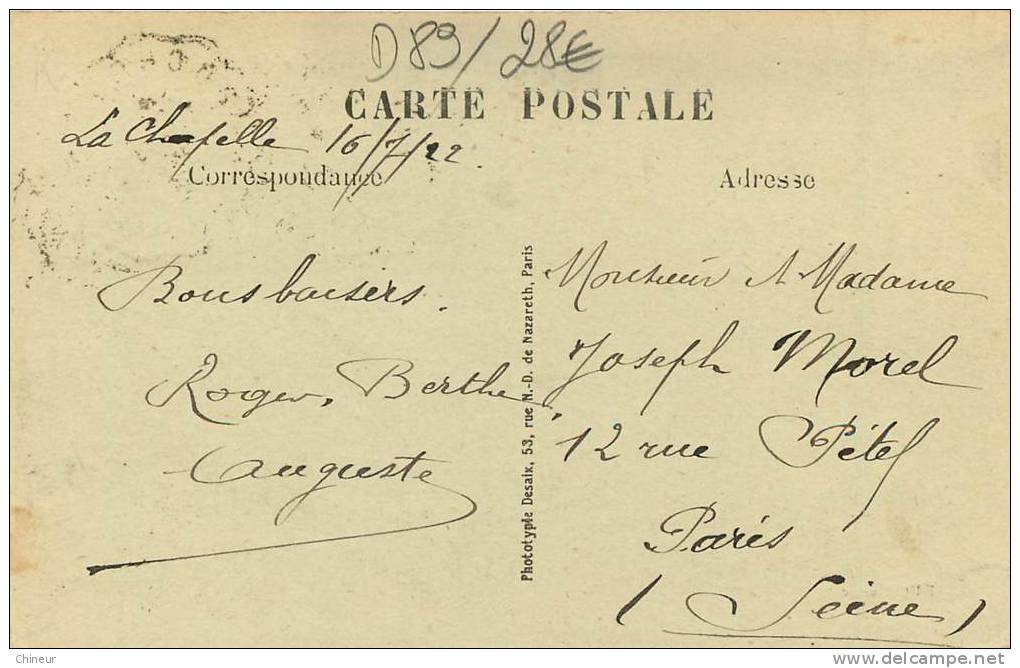 D89/28€
CARTE POSTALE
La Chapelle 16/7/22.
Correspondance
Bons baisers.
Roger, Berthe,
Auguste
Phototypie Desaix, 53, rue N.-D. de Nazareth, Paris
Adresse
Monsieur et Madame
Joseph Morel
12 rue Pétel
Paris
(Seine)
Chineur
www.delcampe.net